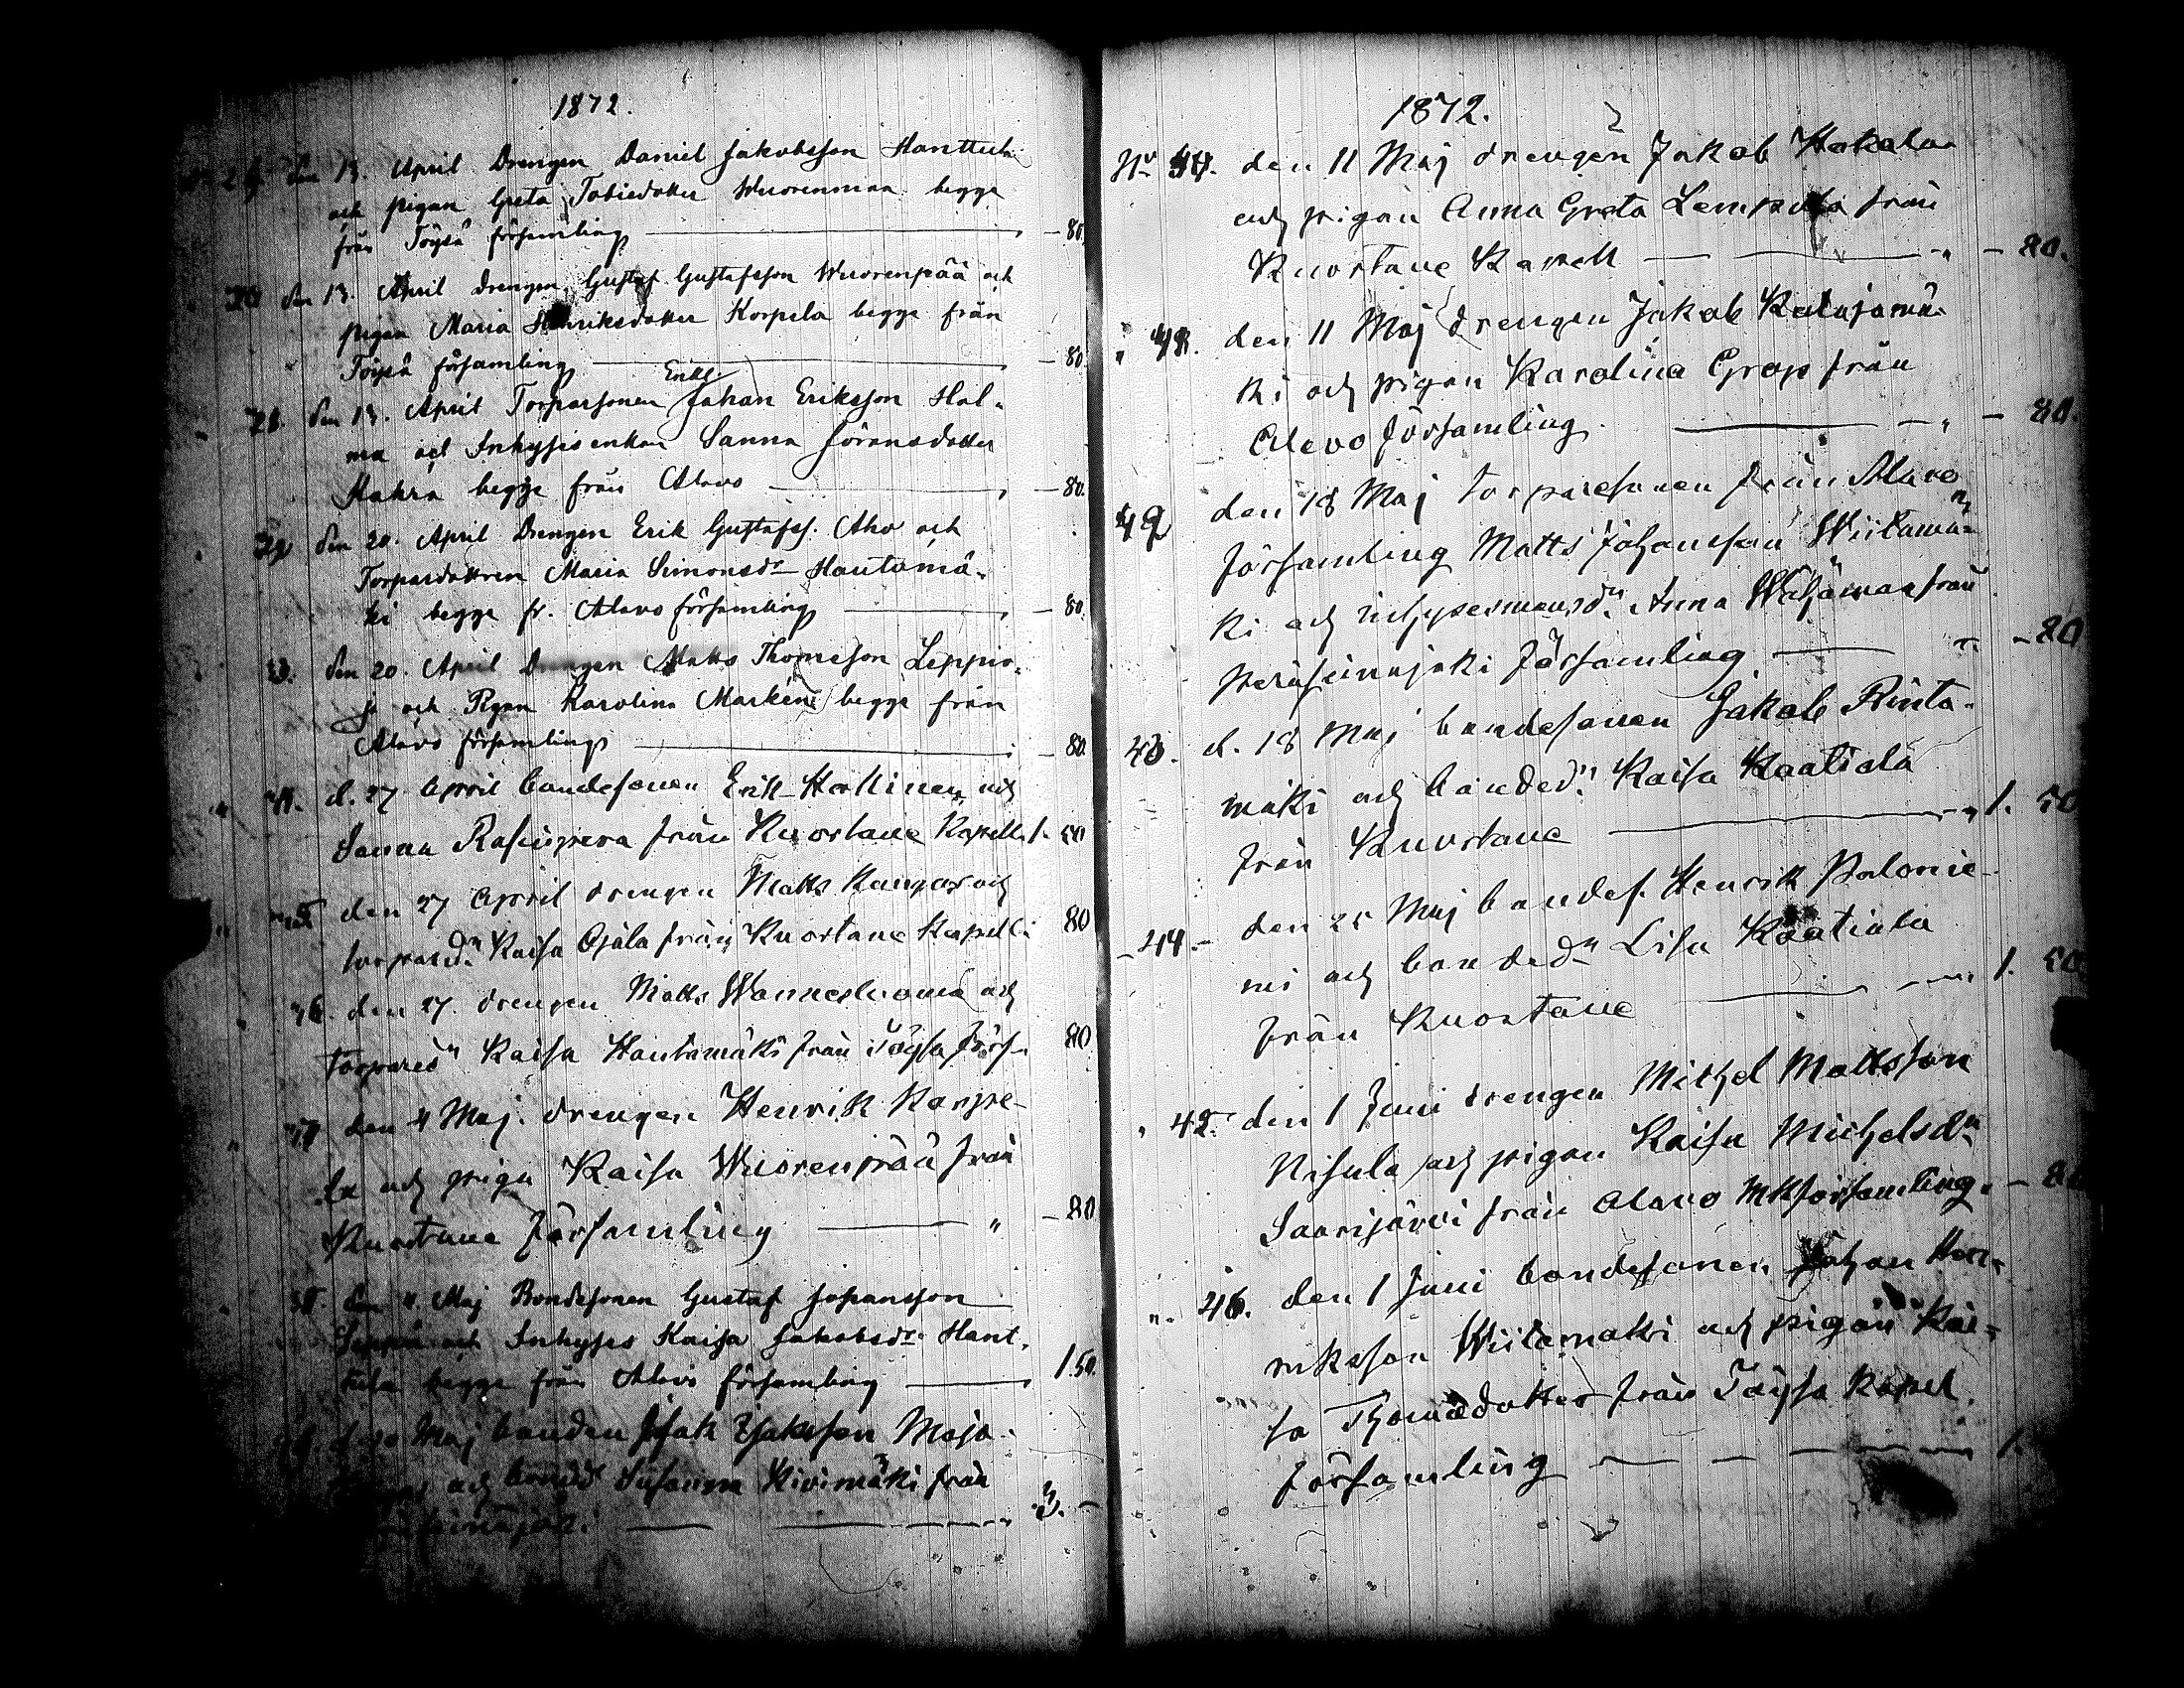 1872.
29. den 13. April Drengen Daniel Jakobsson Hanttula
och pigan Greta Tobiedotter Wuorenmaa begge
från Töysä församling — 80.
30 den 13. April drengen Gustaf Gustafsson Wuorenpää och
pigan Maria Henriksdotter Korpela begge från
Töysä församling — 80.
Enkl.
31. den 13. April Torparsonen Johan Eriksson Hal-
ma och Inhyses enkan Sanna Göransdotter
Hakra begge från Alavo — 80.
32 den 20. April Drengen Erik Gustafss. Aho och
Torpardottren Maria Simonsdr Hautamä-
ki begge fr. Alavo församling — 80.
33. den 20. April Drengen Matts Thomsson Leppio-
ja och Pigan Karolina begge från
Alavo församling — 80.
34. d. 27 April bondesonen Erik och
Sanna från Kuortane Kapell 1. 50
35 den 27 April drengen Matts Kangas och
torpared:n Kaisa Ojala från Kuortane Kapell. 80
36. den 27. drengen Matts och
torpared:n Kaisa Hautamäki från Töysä Förs. 80
37 den 4 Maj. drengen Henrik Karppe-
la och piga Kaisa Wuorenpää från
Kuortane Församling — " — 80
38. den 4. Maj Bondesonen Gustaf Johansson
och Inhyses Kaisa Jakobsdr. Hant-
tula begge från Alavo församling — 1.50.
39. d. Maj bonden Isak Isaksson Maja-
och bonded:r Susanna Kivimäki från
— 3. –
1872.
No 40. den 11 Maj drengen Jakob Hakala
och pigan Anna Greta från
Kuortane Kapell — " — 80.
" 41. den 11 Maj drengen Jakob Katajamä-
ki och pigan Karolina Grop från
Alavo församling. — " — 80.
42 den 18 Maj torparesonen från Alavo
församling Matts Johansson Wiitamä-
ki och inhysesmansd:r Anna från
Peräseinäjoki församling — " — 80
43. d. 18 Maj bondesonen Jakob Rinta-
mäki och bonded:n Kaisa Kaatiala
från Kuortane — " 1. 50
44. – den 25 Maj bondes. Henrik Palonie-
mi och bonded:n Lisa Kaatiala
från Kuortane — " 1. 50
" 45. den 1 Juni drengen Michel Mattsson
Nisula och pigan Kaisa Michelsd:n
Saarijärvi från Alavo Mkförsamling. — 80
" 46. den 1 Juni bondesonen Johan Hen-
riksson Wiitamäki och pigan Kai-
sa Thomædotter från Töysä Kapel
församling — 1.